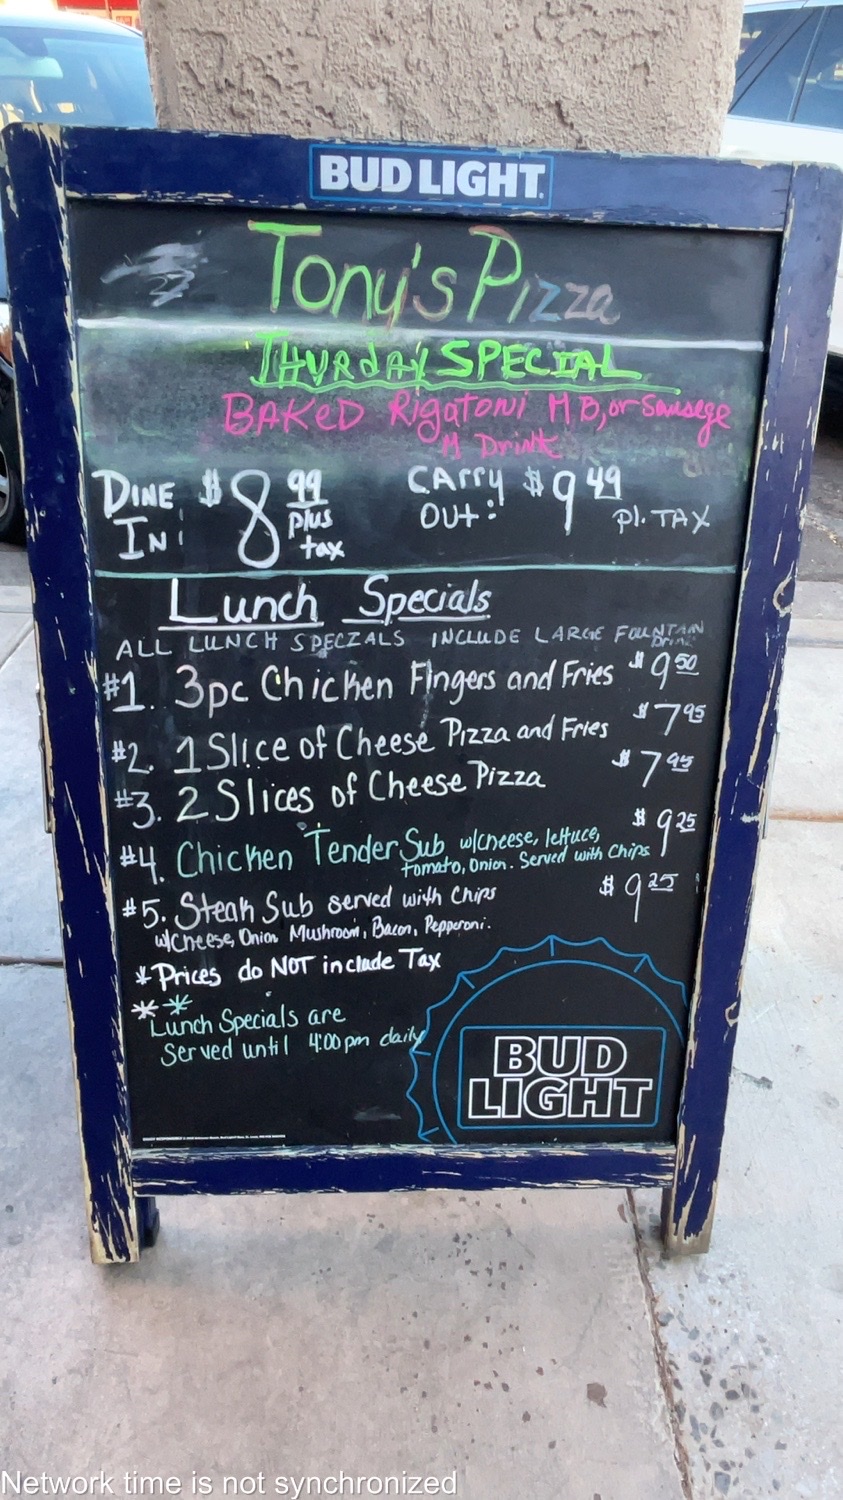 BUD LIGHT
Tony's Pizza
THURDAY SPECIAL
BAKED Rigatoni M B, or Sausege
M Drink
DINE IN: $8 99 plus tax
CARRY OUT: $9 49 pl. TAX
Lunch Specials
ALL LUNCH SPECIALS INCLUDE LARGE FOUNTAIN DRINK
#1. 3pc Chicken Fingers and Fries $9 50
#2. 1 Slice of Cheese Pizza and Fries $7 95
#3. 2 Slices of Cheese Pizza $7 95
#4. Chicken Tender Sub w/cheese, lettuce, $9 25
tomato, Onion. Served with Chips
#5. Steak Sub served with Chips $9 25
w/Cheese, Onion Mushroom, Bacon, Pepperoni.
* Prices do NOT include Tax
** Lunch Specials are
Served until 4:00 pm daily
BUD
LIGHT
Network time is not synchronized